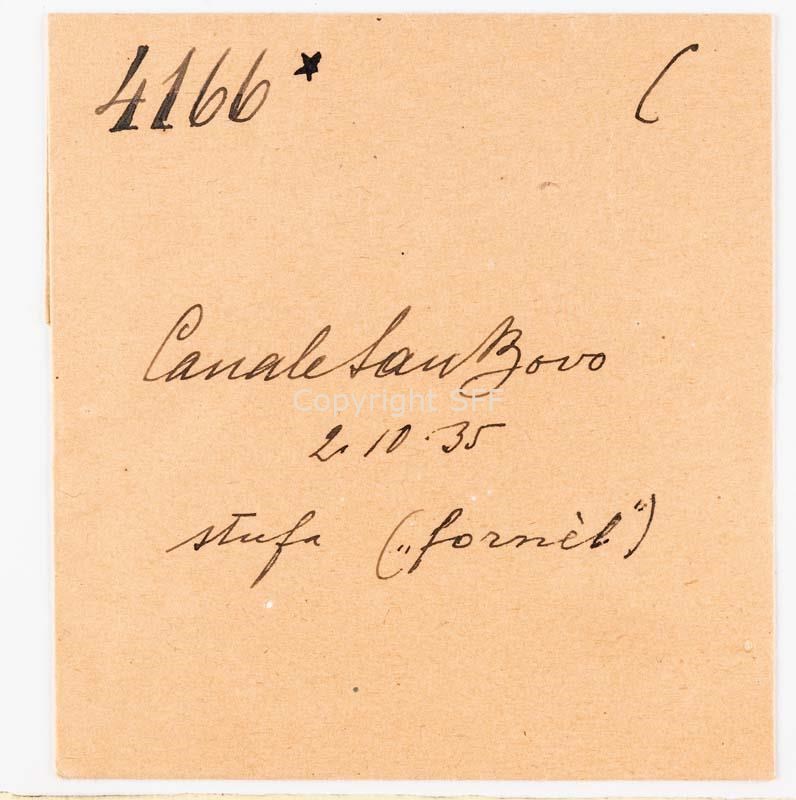 4166* (
Canale San Bovo
Copyright SFF
2.10.35
stufa („fornèl")